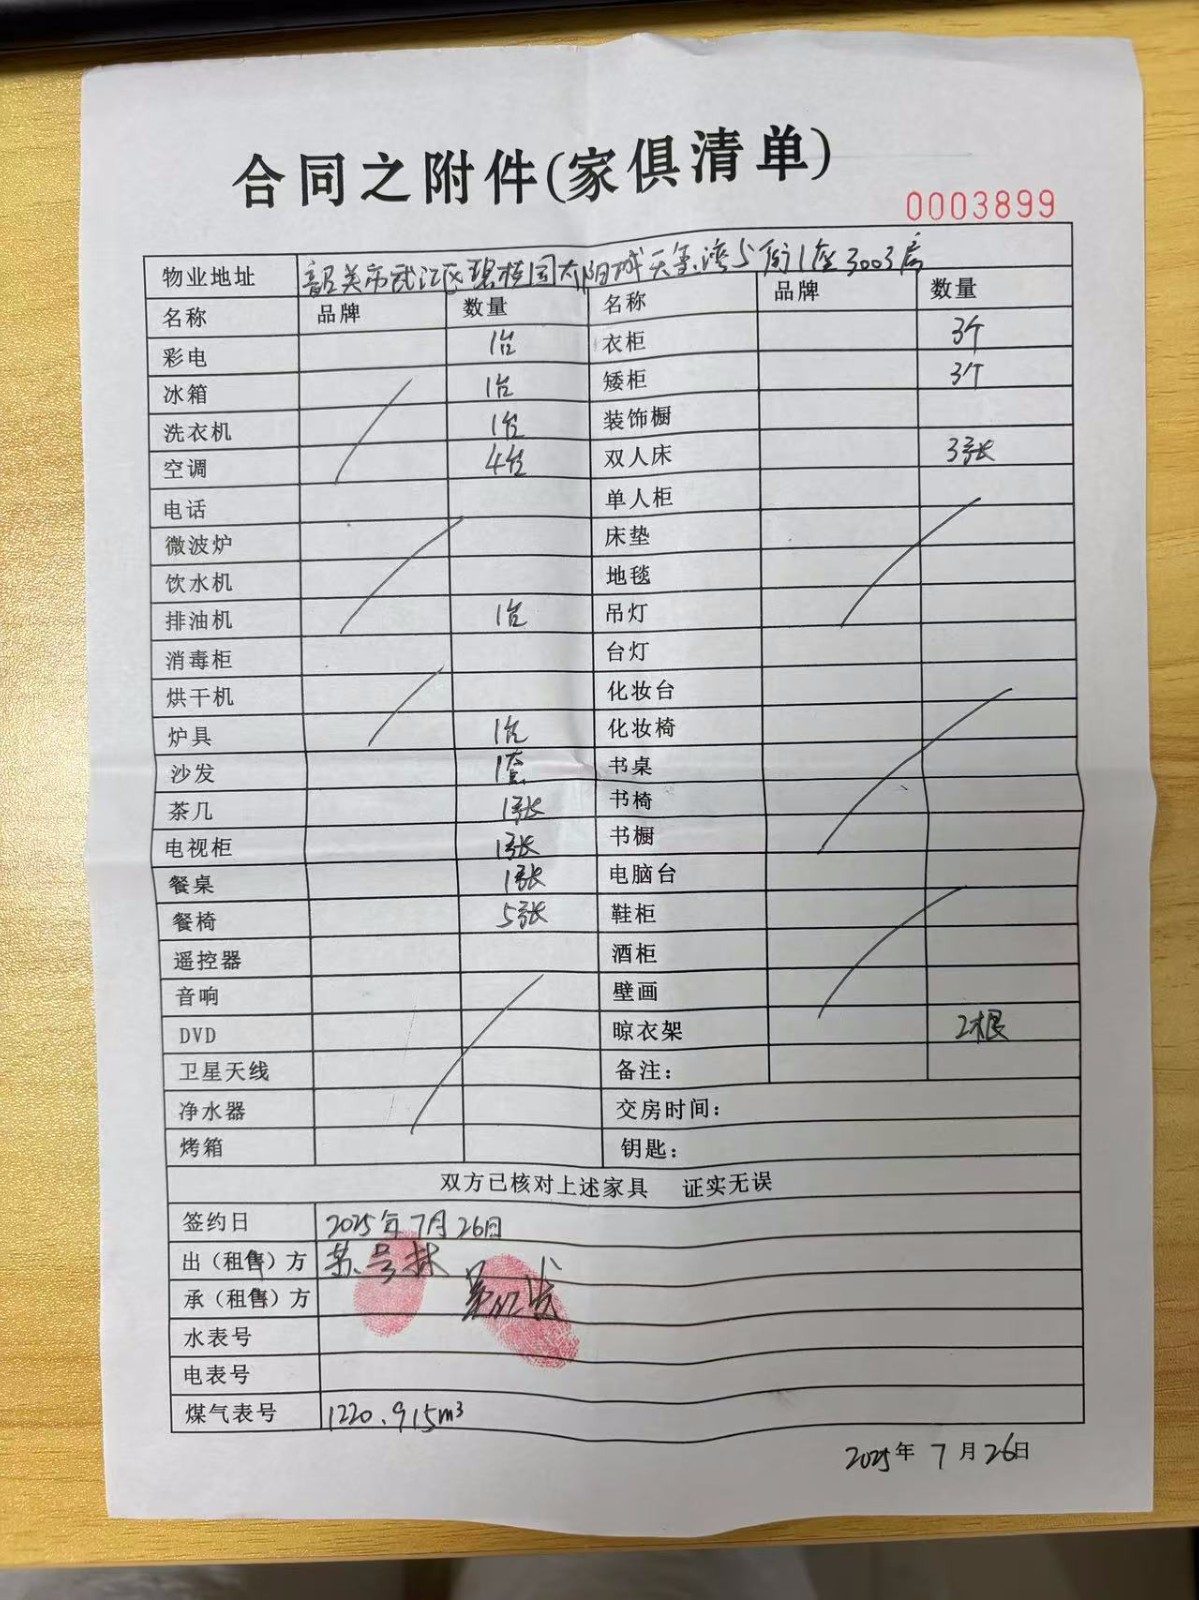 合同之附件(家俱清单)
0003899
物业地址 韶关市武江区碧桂园太阳城天玺湾5街1座3003房
名称 品牌 数量 名称 品牌 数量
彩电 1台 衣柜 3个
冰箱 1台 矮柜 3个
洗衣机 1台 装饰橱
空调 4台 双人床 3张
电话 单人柜
微波炉 床垫
饮水机 地毯
排油机 1台 吊灯
消毒柜 台灯
烘干机 化妆台
炉具 1台 化妆椅
沙发 1套 书桌
茶几 1张 书椅
电视柜 1张 书橱
餐桌 1张 电脑台
餐椅 5张 鞋柜
遥控器 酒柜
音响 壁画
DVD 晾衣架 2根
卫星天线 备注：
净水器 交房时间：
烤箱 钥匙：
双方已核对上述家具 证实无误
签约日 2025年7月26日
出（租售）方
承（租售）方
水表号
电表号
煤气表号 1220.915m³
2025年7月26日